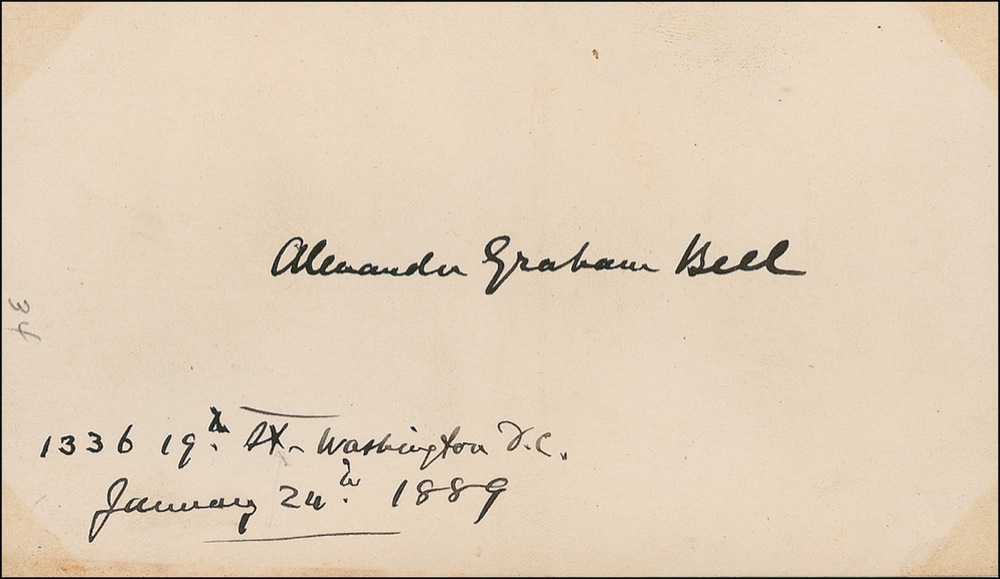 Alexander Graham Bell
34
1336 19th St. Washington D.C.
January 24th 1889